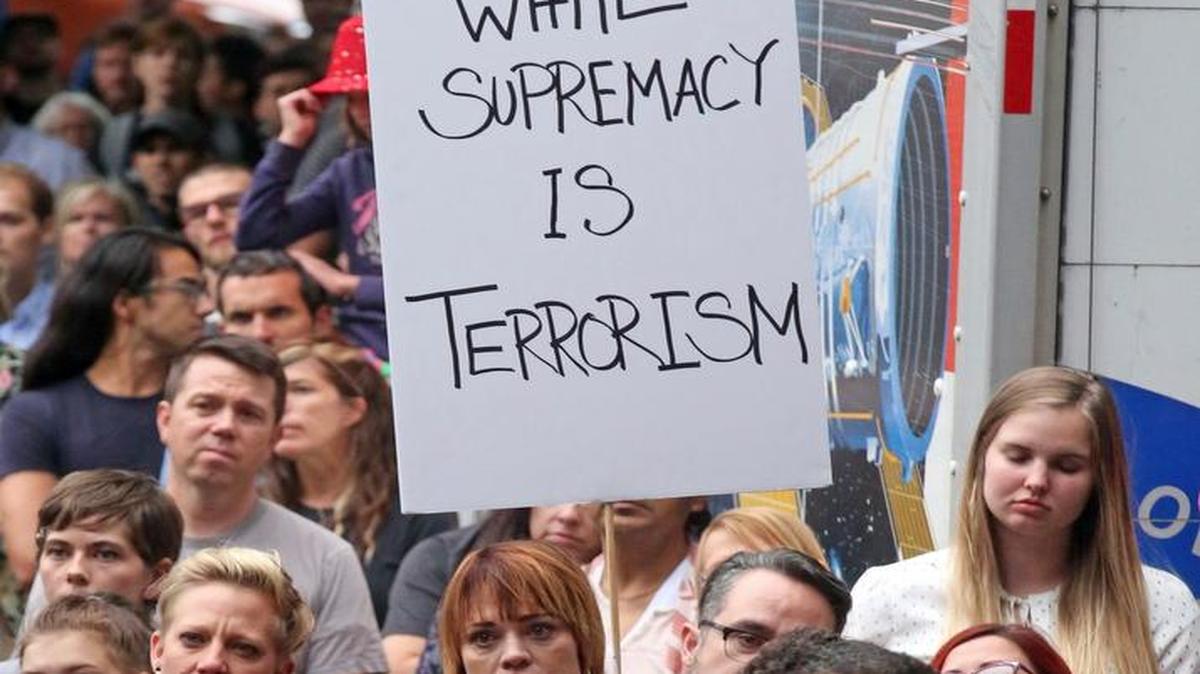 WHITE
SUPREMACY
IS
TERRORISM